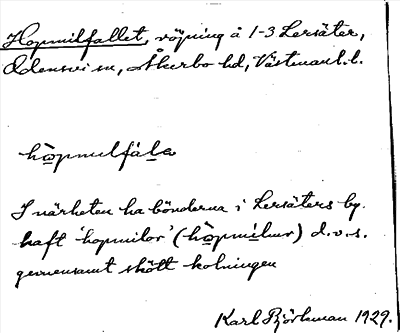 Hopmilfallet, röjning å 1-3 Lersäter,
Odensvi sn, Åkerbo hd, Västmanl. l.
hopmilfäla
I närheten ha bönderna i Lersäters by
haft 'hopmilor' (hopmilur) d.v.s.
gemensamt skött kolningen
Karl Björkman 1929.